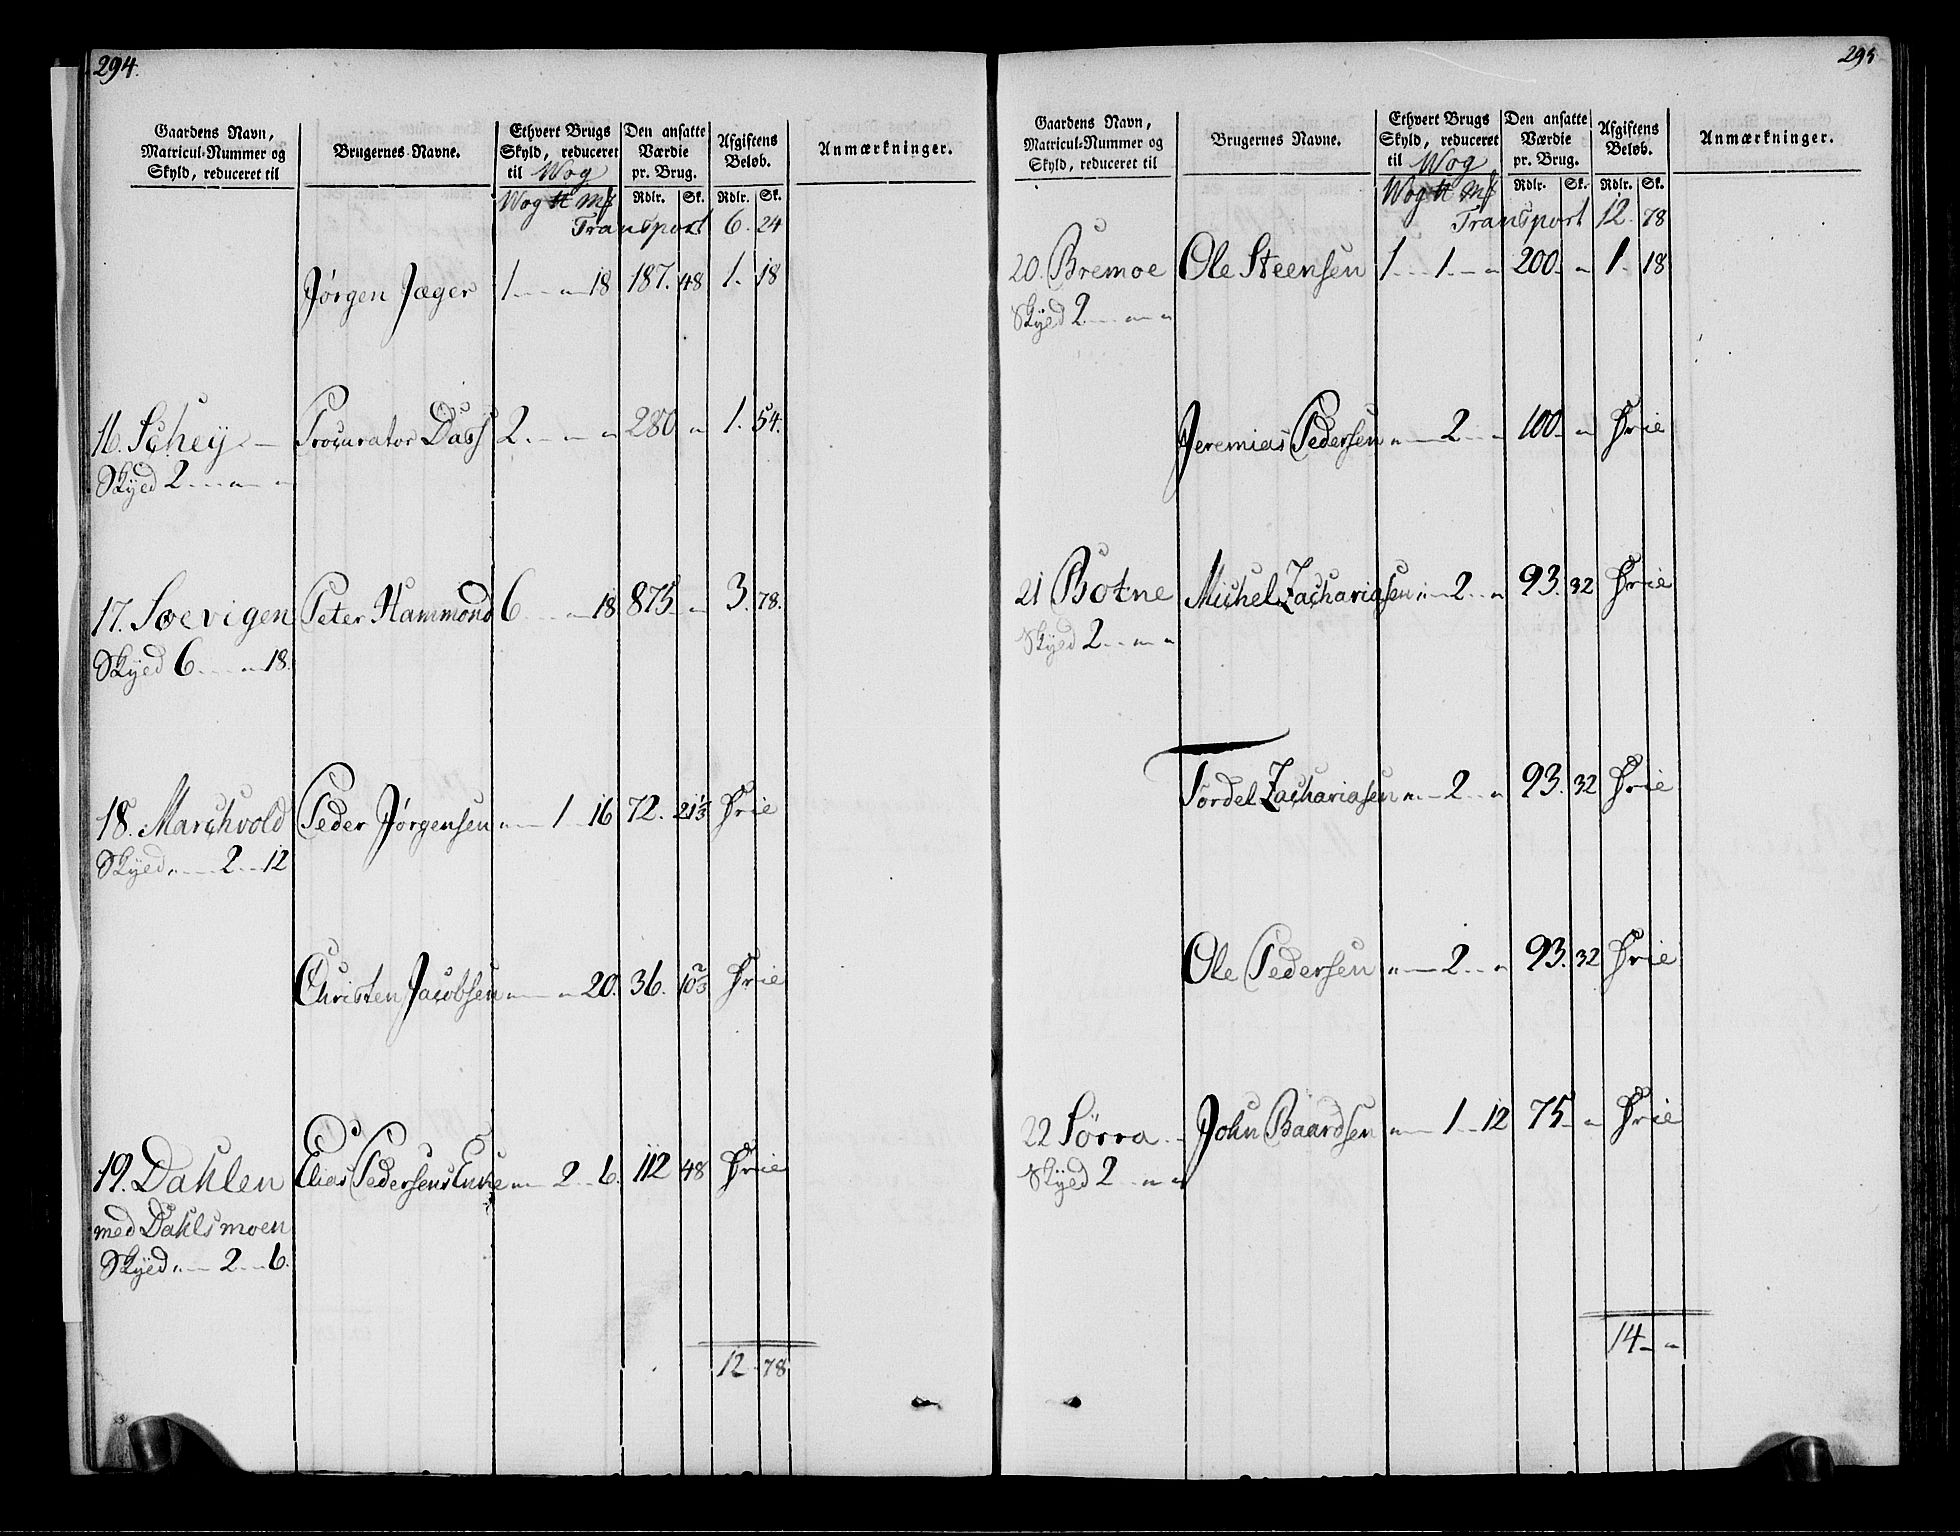 294.
Gaardens Navn, Matricul-Nummer og Skyld, reduceret til | Brugernes Navne. | Ethvert Brugs Skyld, reduceret til Wog | Den ansatte Værdie pr. Brug. | Afgiftens Beløb. | Anmærkninger.
Wog ℔ Mk | Rdlr. | Sk. | Rdlr. | Sk.
Transport 6. 24
Jørgen Jæger 1 .. „ 18 187. 48 1. 18
16. Schey Procurator Dass 2 .. „ 280 „ 1. 54.
Skyed 2 .. „ „
17. Soevigen Peter Hammond 6 .. „ 18 875 „ 3. 78.
Skyed 6 .. „ 18.
18. Marchvold Peder Jørgensen „ 1 16 72. 21 1/3 Frie
Skyed „ 2 12
Christen Jacobsen „ „ 20. 36. 10 2/3 Frie
19. Dahlen Elias Pedersens Enke „ 2 6. 112 48 Frie
med Dahlsmoen
Skyed „ 2 6.
12 78
295
Gaardens Navn, Matricul-Nummer og Skyld, reduceret til | Brugernes Navne. | Ethvert Brugs Skyld, reduceret til Wog | Den ansatte Værdie pr. Brug. | Afgiftens Beløb. | Anmærkninger.
Wog ℔ Mk | Rdlr. | Sk. | Rdlr. | Sk.
Transport 12. 78
20. Bremoe Ole Steensen 1 1 „ 200 „ 1. 18
Skyed 2 .. „ „
Jeremias Pedersen „ 2 „ 100 „ Frie
21 Botne Michel Zachariasen „ 2 „ 93. 32 Frie
Skyed 2 .. „ „
Tordel Zachariasen „ 2 „ 93. 32 Frie
Ole Pedersen „ 2 „ 93. 32 Frie
22 Sørra John Baardsen „ 1 12 75 „ Frie
Skyed 2 .. „ „
14 „